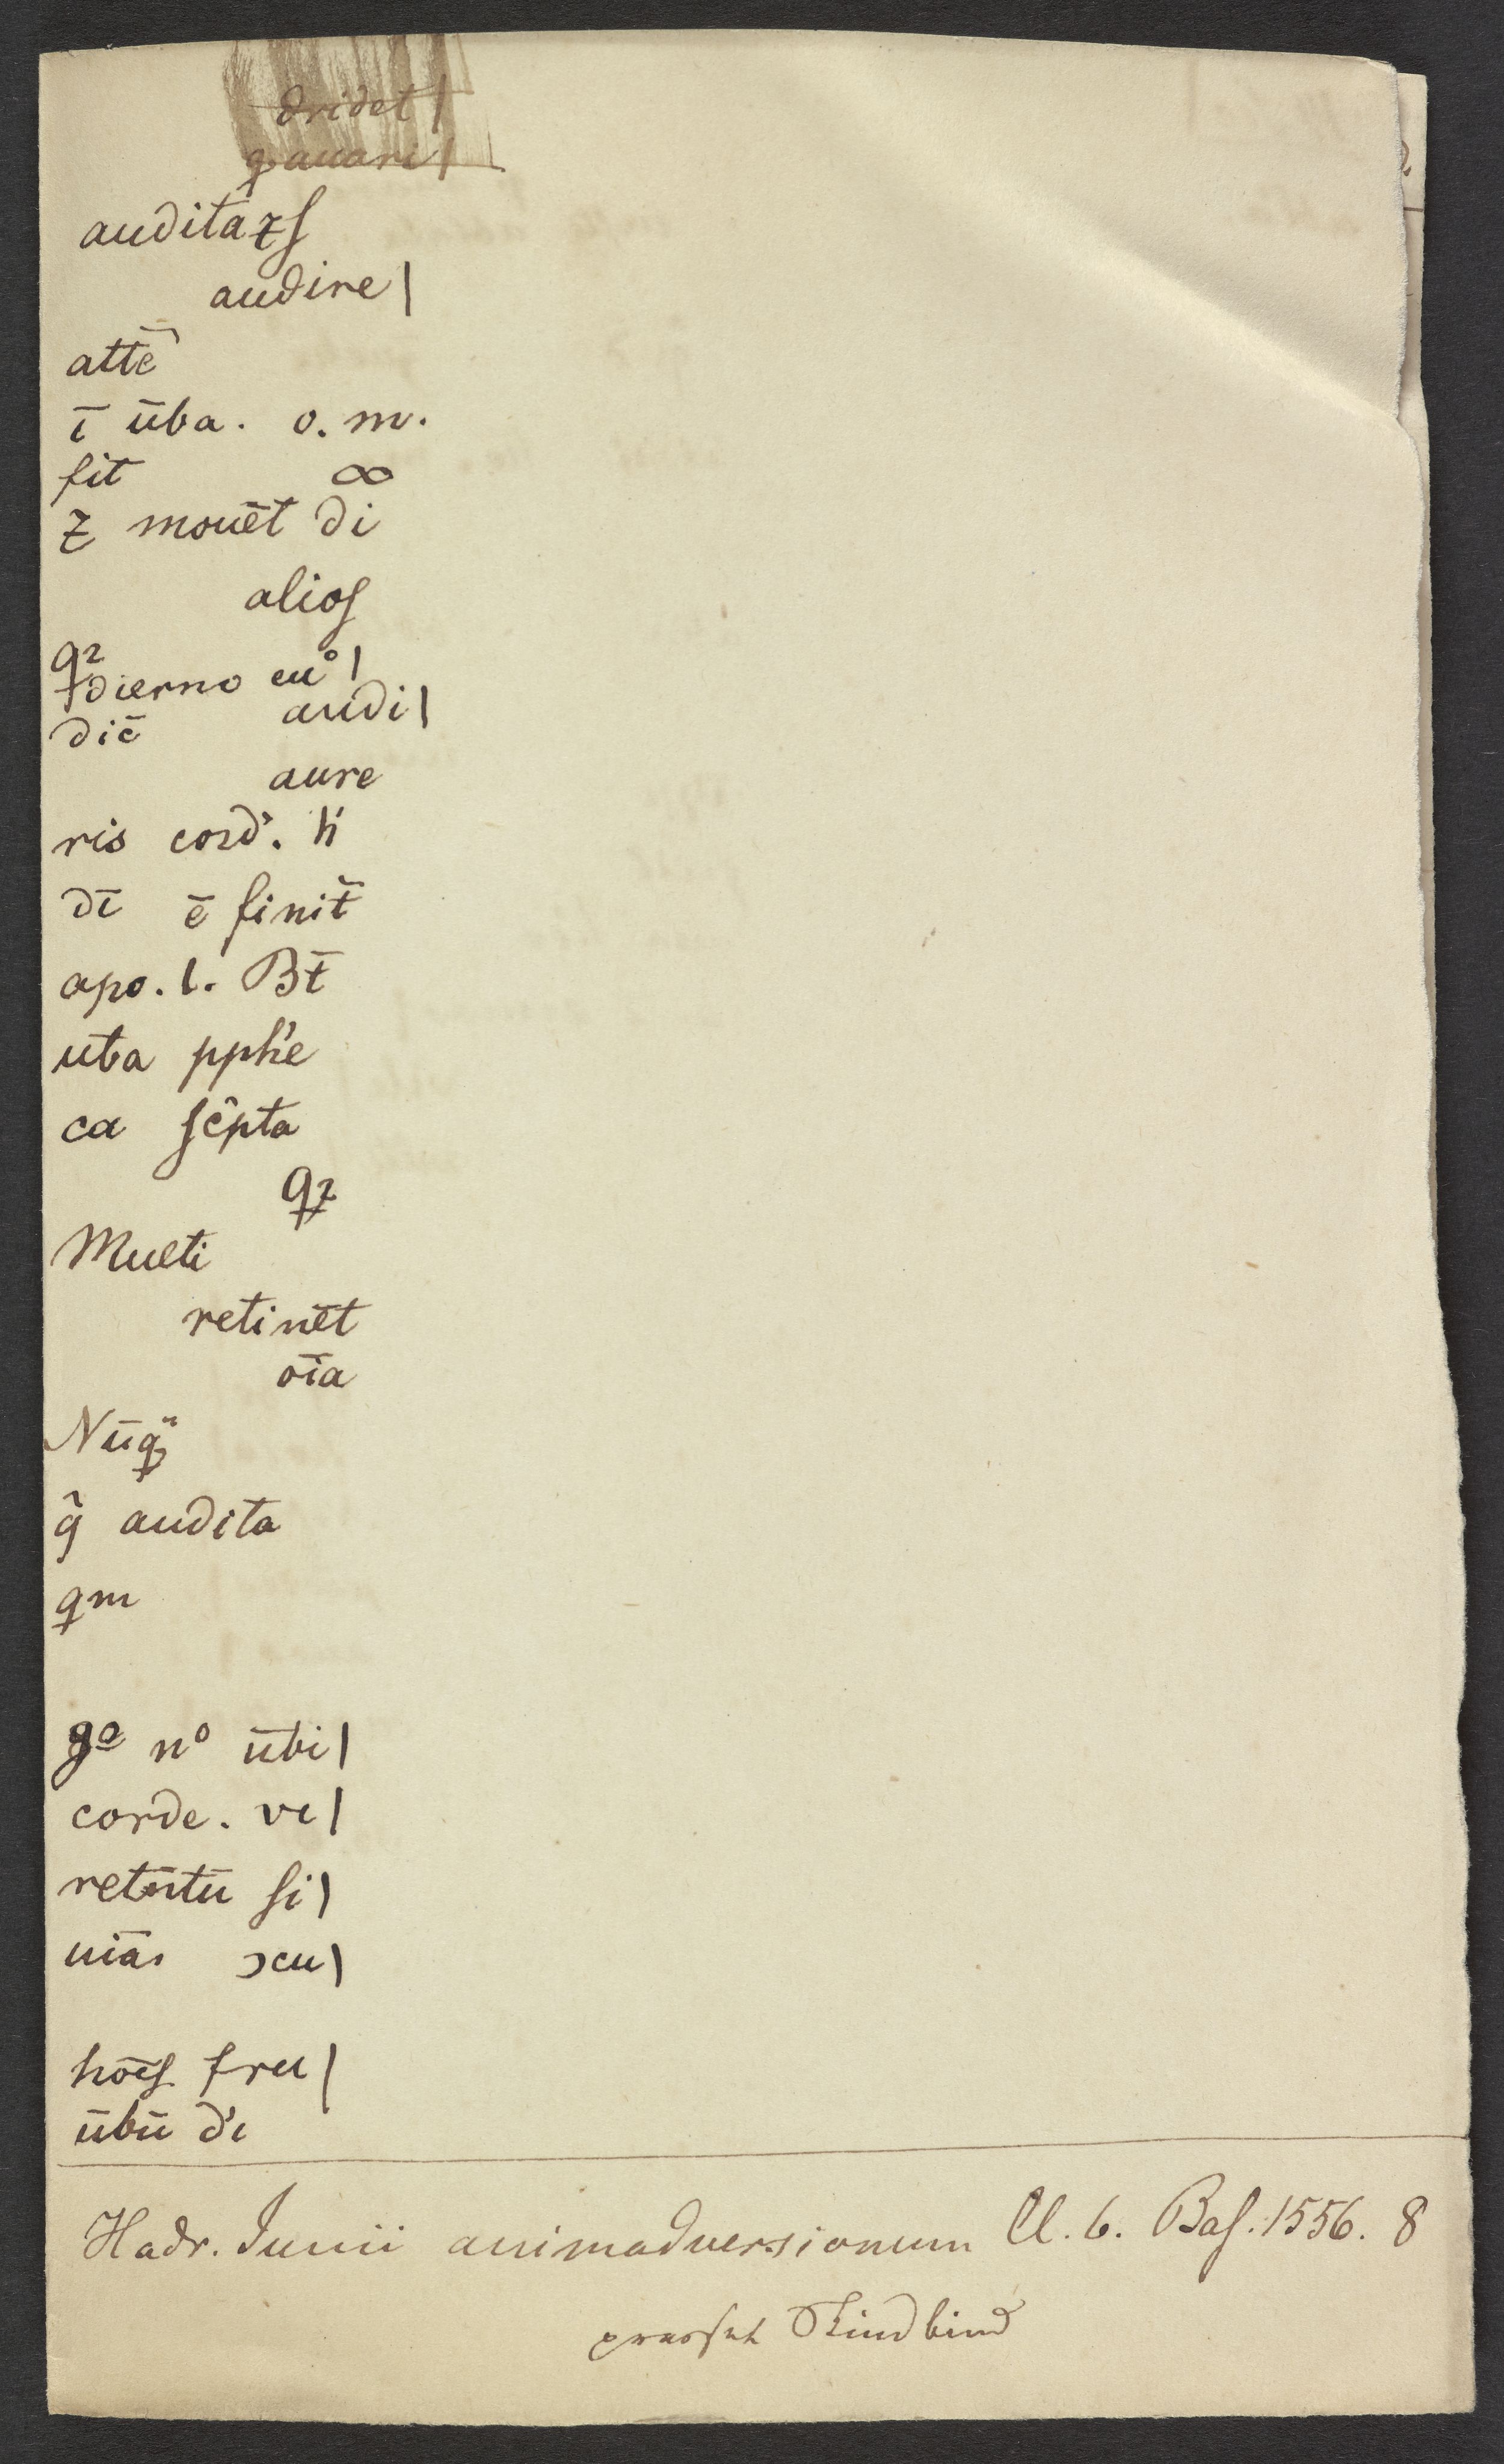 dridet |
auditaꝫſ
audire |
attē
ī ūba. o. m.
fit ∞
ꝫ mouēt di
alioſ
q2
dierno eu° |
audi |
diē
aure
ris cord'. h
dī ē finit̄
apo. l. Bt̄
uba pph'e
ca ſc̄pta
qꝫ
Multi
retinēt
oīa
Nūq̄
q̄ audita
qm
gº nº ūbi |
corde. ve |
retn̄tū ſi |
uiā ɔcu |
hoēſ fru |
ūbū d'i
Hadr. Junii animadversionum Cl. 6. Baſ. 1556. 8